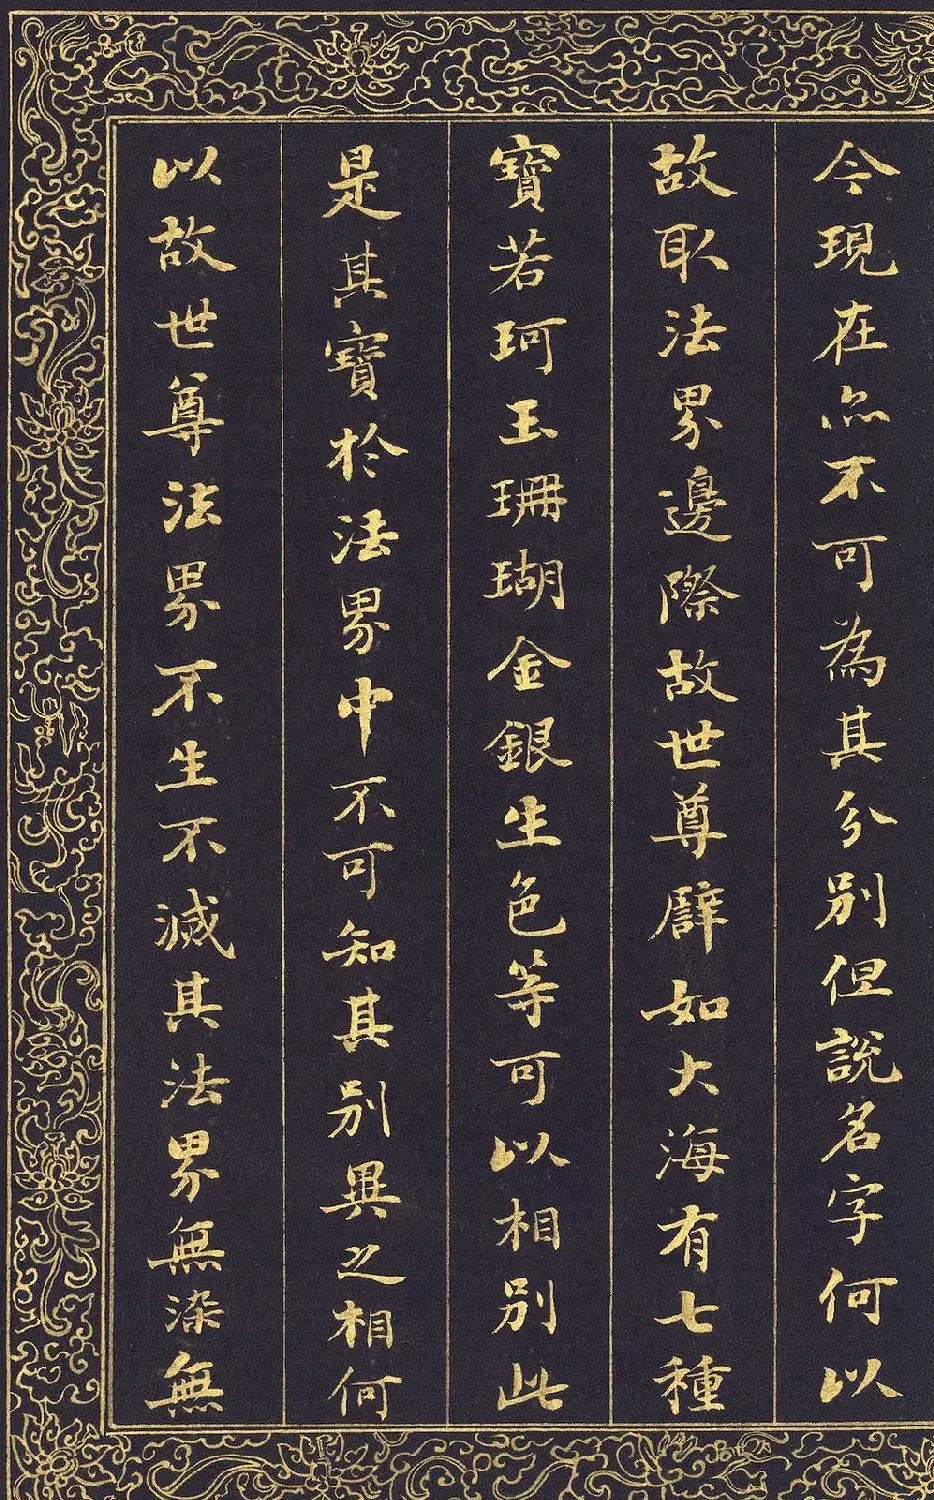 今現在亦不可為其分別但說名字何以
故取法界邊際故世尊辟如大海有七種
寶若珂玉珊瑚金銀生色等可以相別此
是其寶於法界中不可知其別異之相何
以故世尊法界不生不滅其法界無染無